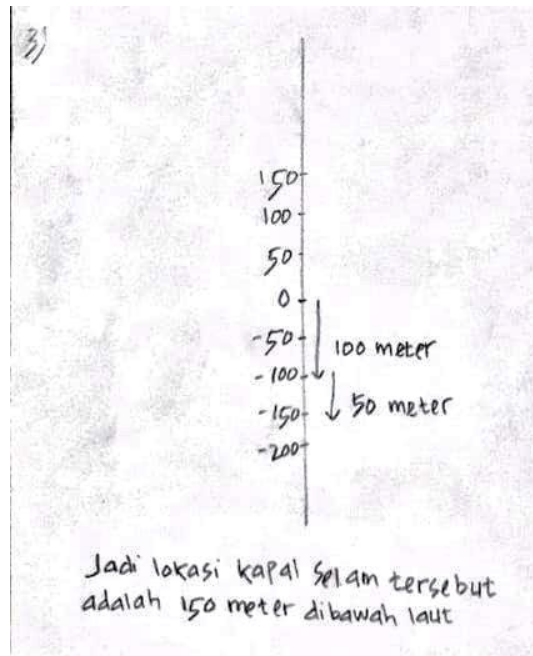 3)
150
100
50
0
-50
100 meter
-100
50 meter
-150
-200
Jadi lokasi kapal selam tersebut
adalah 150 meter dibawah laut